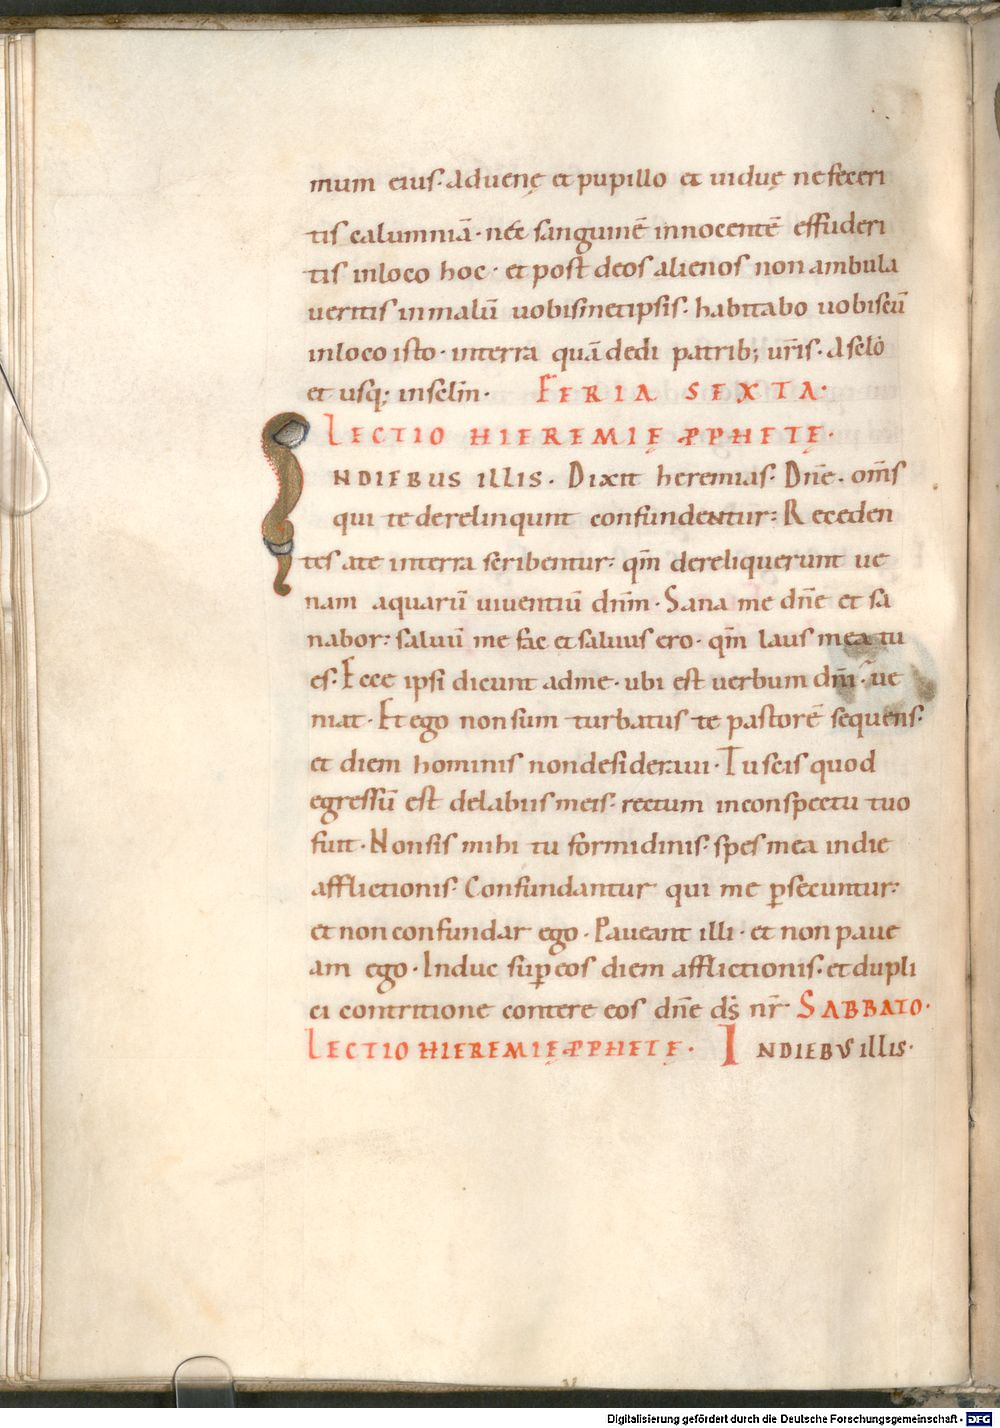 mum eius· aduenę et pupillo et uiduę ne feceri
tis calumniā· nec sanguinē innocentē effuderi
tis inloco hoc· et post deos alienos non ambula
ueritis inmalū uobismetipsis· habitabo uobiscū
inloco isto· interra quā dedi patrib; uris̄· Aselo
et usq; inselm̄· FERIA SEXTA·
LECTIO HIEREMIĘ PPHETĘ·
INDIEBUS ILLIS· Dixit heremias· Dn̄e· om̄s
qui te derelinqunt confundentur: Receden
tes ate interra scribentur: qm̄ dereliquerunt ue
nam aquarū uiuentiū dn̄m· Sana me dn̄e et sa
nabor: saluū me fac et saluus ero· qm̄ laus mea tu
es· Ecce ipsi dicunt adme· ubi est uerbum dn̄i· ue
niat· Et ego non sum turbatus te pastorē sequens·
et diem hominis nondesideraui· Tu scis quod
egressū est delabiis meis· rectum inconspectu tuo
fuit· Nonsis mihi tu formidinis· spes mea indie
afflictionis· Confundantur qui me p̱secuntur:
et non confundar ego· Paueant illi· et non paue
am ego· Induc sup̱ eos diem afflictionis· et dupli
ci contritione contere eos dn̄e ds̄ nr̄ SABBATO·
LECTIO HIEREMIĘ PPHETĘ· INDIEBUS ILLIS·
Digitalisierung gefördert durch die Deutsche Forschungsgemeinschaft - DFG